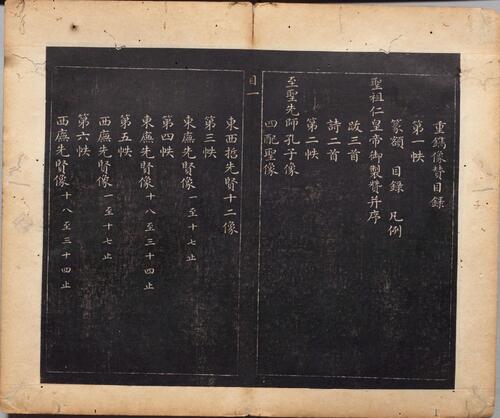 重鐫像贊目錄
第一帙
篆額 目錄 凡例
聖祖仁皇帝御製贊并序
跋三首
詩二首
第二帙
至聖先師孔子像
四配聖像
目一
東西哲先賢十二像
第三帙
東廡先賢像一至十七止
第四帙
東廡先賢像十八至三十四止
第五帙
西廡先賢像一至十七止
第六帙
西廡先賢像十八至三十四止